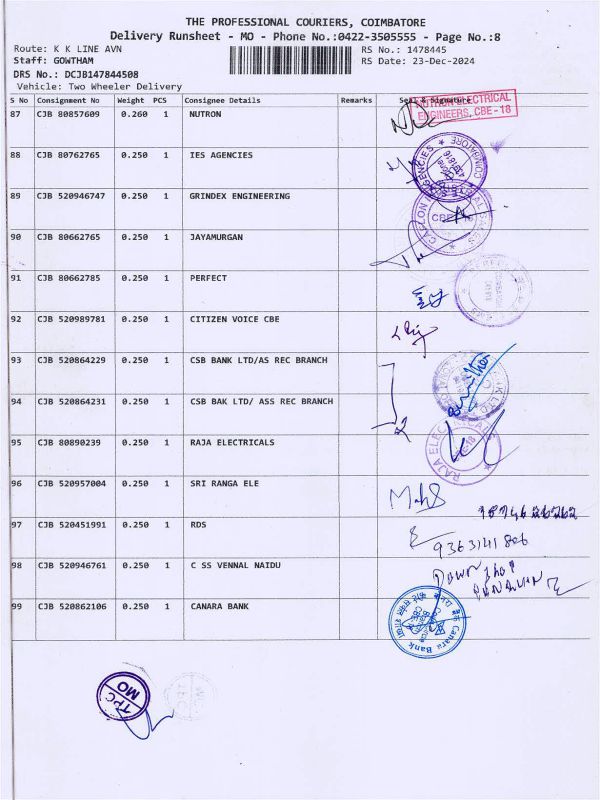 THE PROFESSIONAL COURIERS, COIMBATORE
Delivery Runsheet - MO - Phone No.:0422-3505555 - Page No.:8
Route: K K LINE AVN RS No.: 1478445
Staff: GOWTHAM RS Date: 23-Dec-2024
DRS No.: DCJB147844508
Vehicle: Two Wheeler Delivery
S No Consignment No Weight PCS Consignee Details Remarks Seal & Signature
87 CJB 80857609 0.260 1 NUTRON
NUTRON ELECTRICAL
ENGINEERS, CBE-18
88 CJB 80762765 0.250 1 IES AGENCIES
89 CJB 520946747 0.250 1 GRINDEX ENGINEERING
90 CJB 80662765 0.250 1 JAYAMURGAN
91 CJB 80662785 0.250 1 PERFECT
92 CJB 520989781 0.250 1 CITIZEN VOICE CBE
93 CJB 520864229 0.250 1 CSB BANK LTD/AS REC BRANCH
94 CJB 520864231 0.250 1 CSB BAK LTD/ ASS REC BRANCH
95 CJB 80890239 0.250 1 RAJA ELECTRICALS
RAJA ELECTRICALS
96 CJB 520957004 0.250 1 SRI RANGA ELE
97 CJB 520451991 0.250 1 RDS
9363141806
98 CJB 520946761 0.250 1 C SS VENNAL NAIDU
99 CJB 520862106 0.250 1 CANARA BANK
Canara Bank
TPC
MO